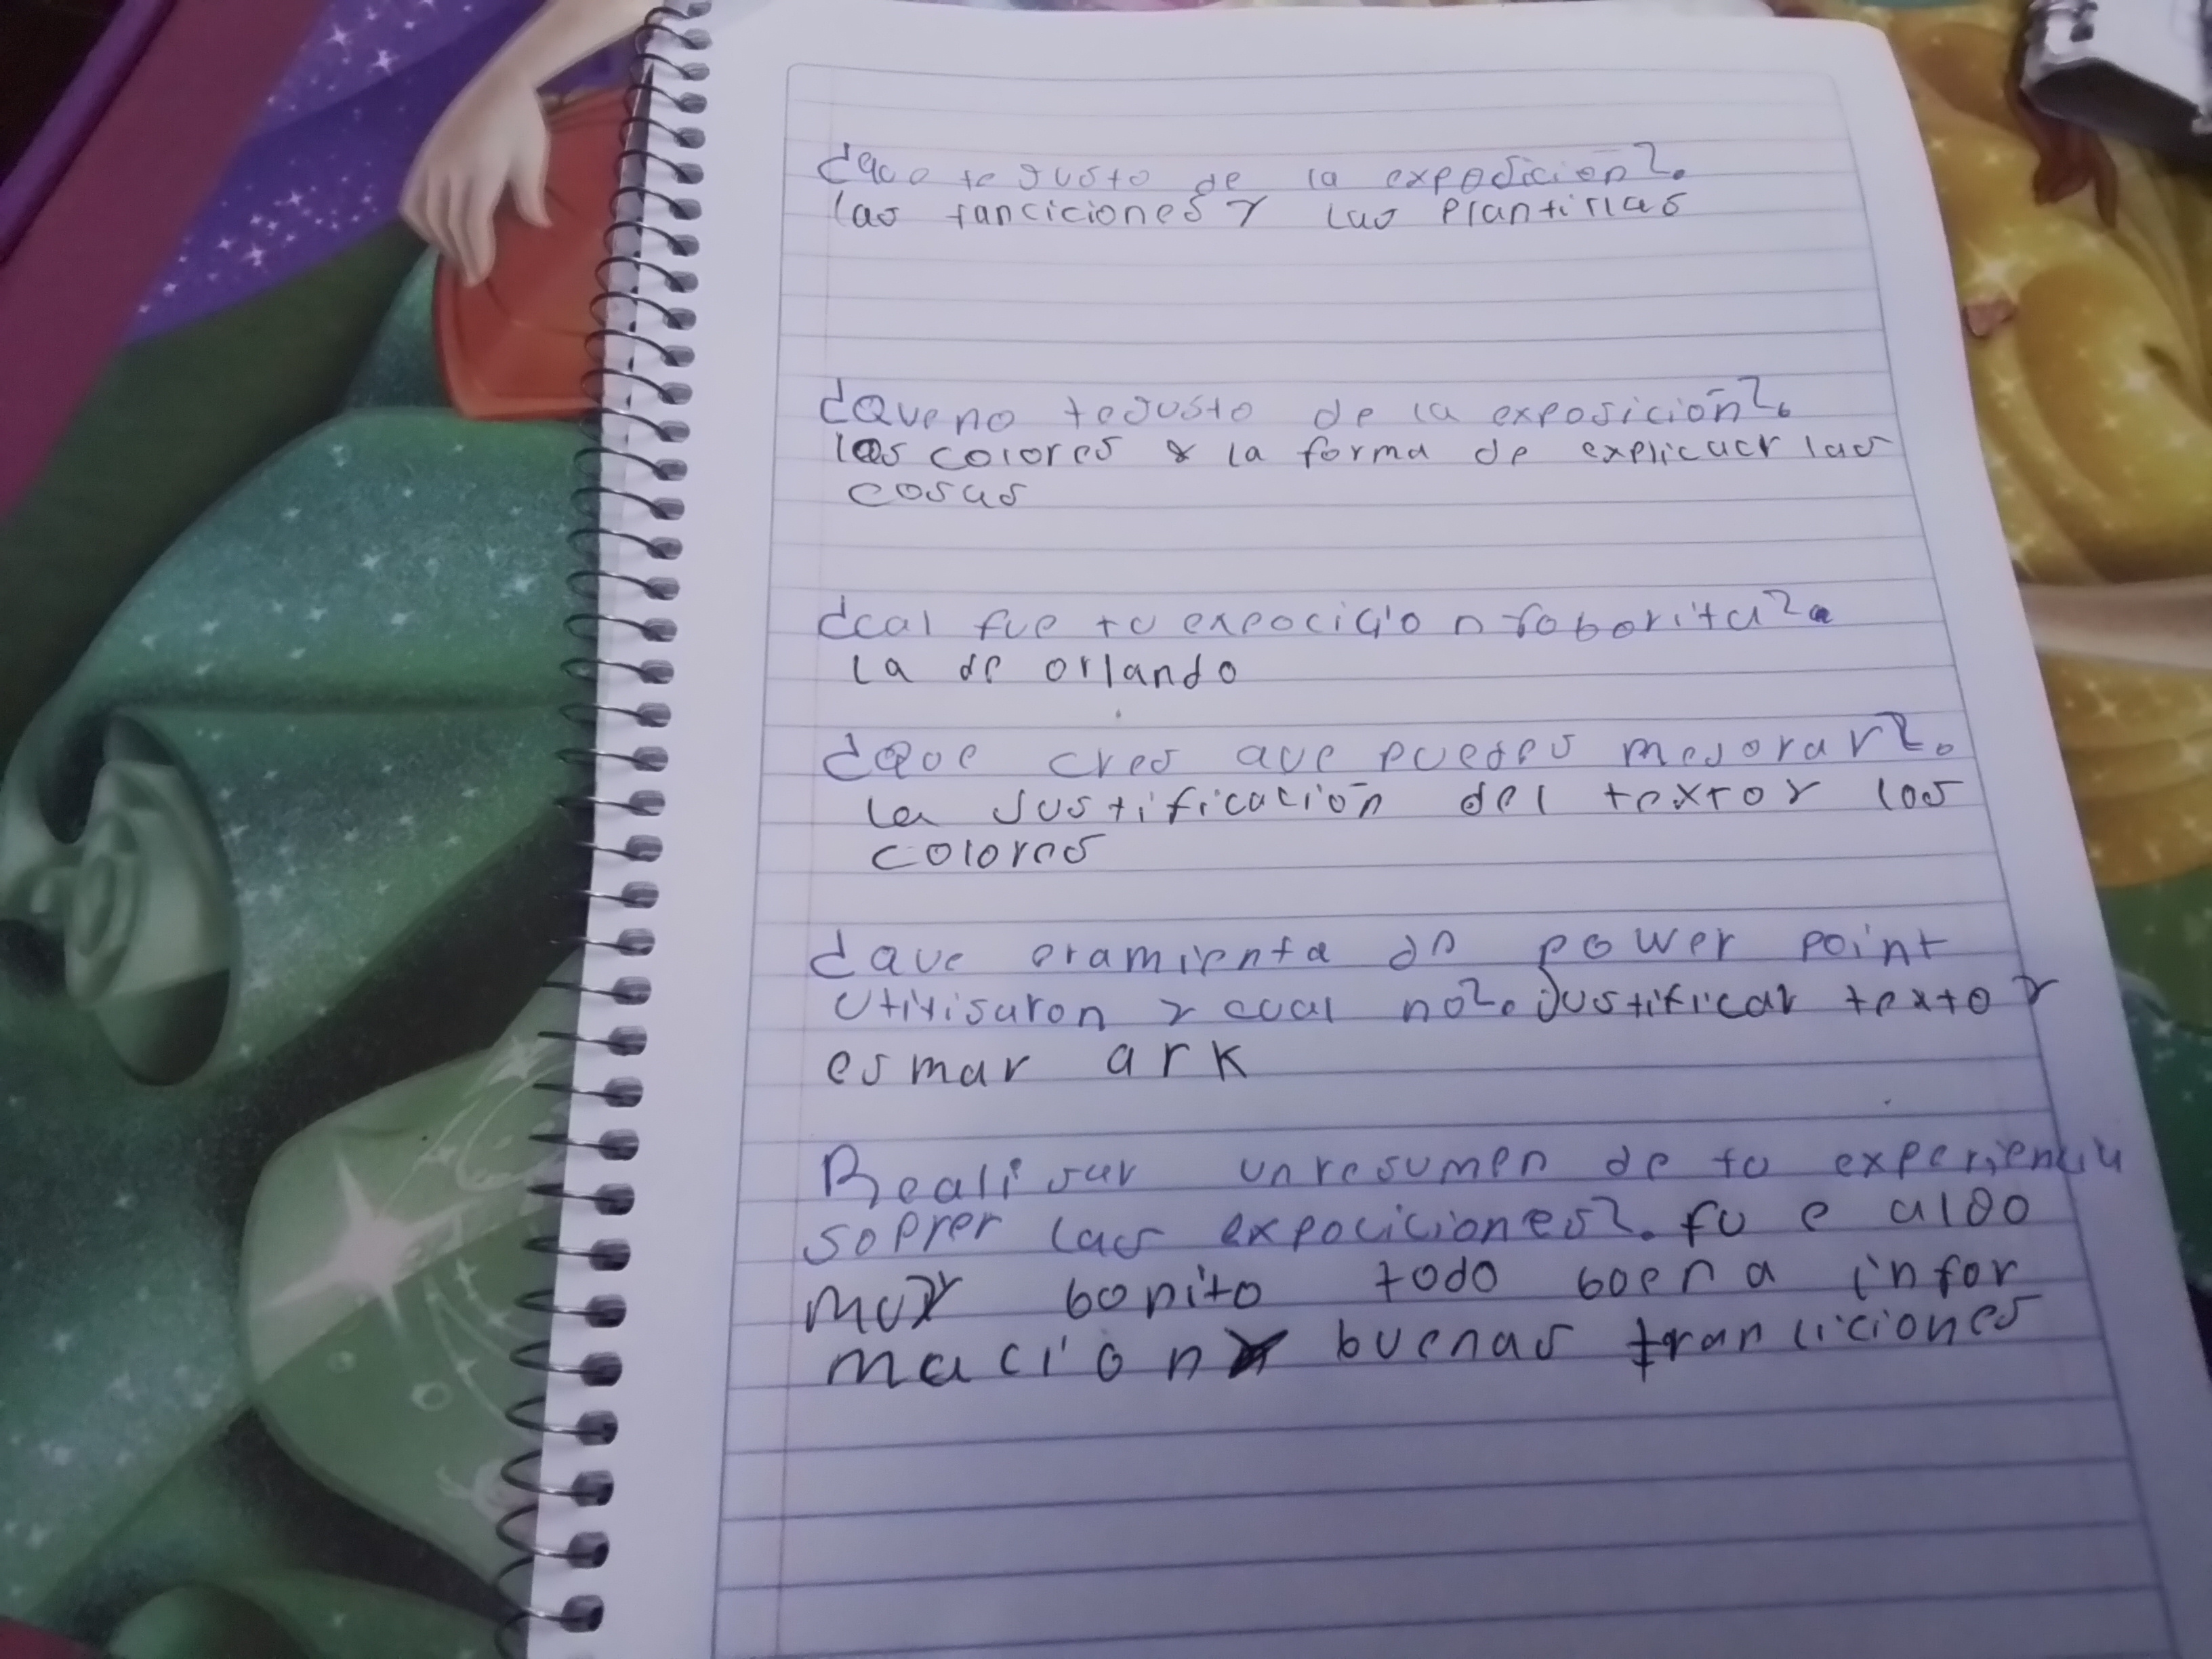 ¿que te gusto de la exposicion?
las tanciciones y las plantillas
¿que no te gusto de la exposición?
los colores y la forma de explicacr las
cosas
¿cal fue tu expocicion faborita?
la de orlando
¿que cres que puedes mejorar?
la justificación del texto y los
colores
¿que eramienta de power point
utilisaron y cual no? justificar texto y
esmar ark
Realisar un resumen de tu experiencia
soprer las expociciones? fue algo
muy bonito todo boena infor
macion y buenas tranciciones